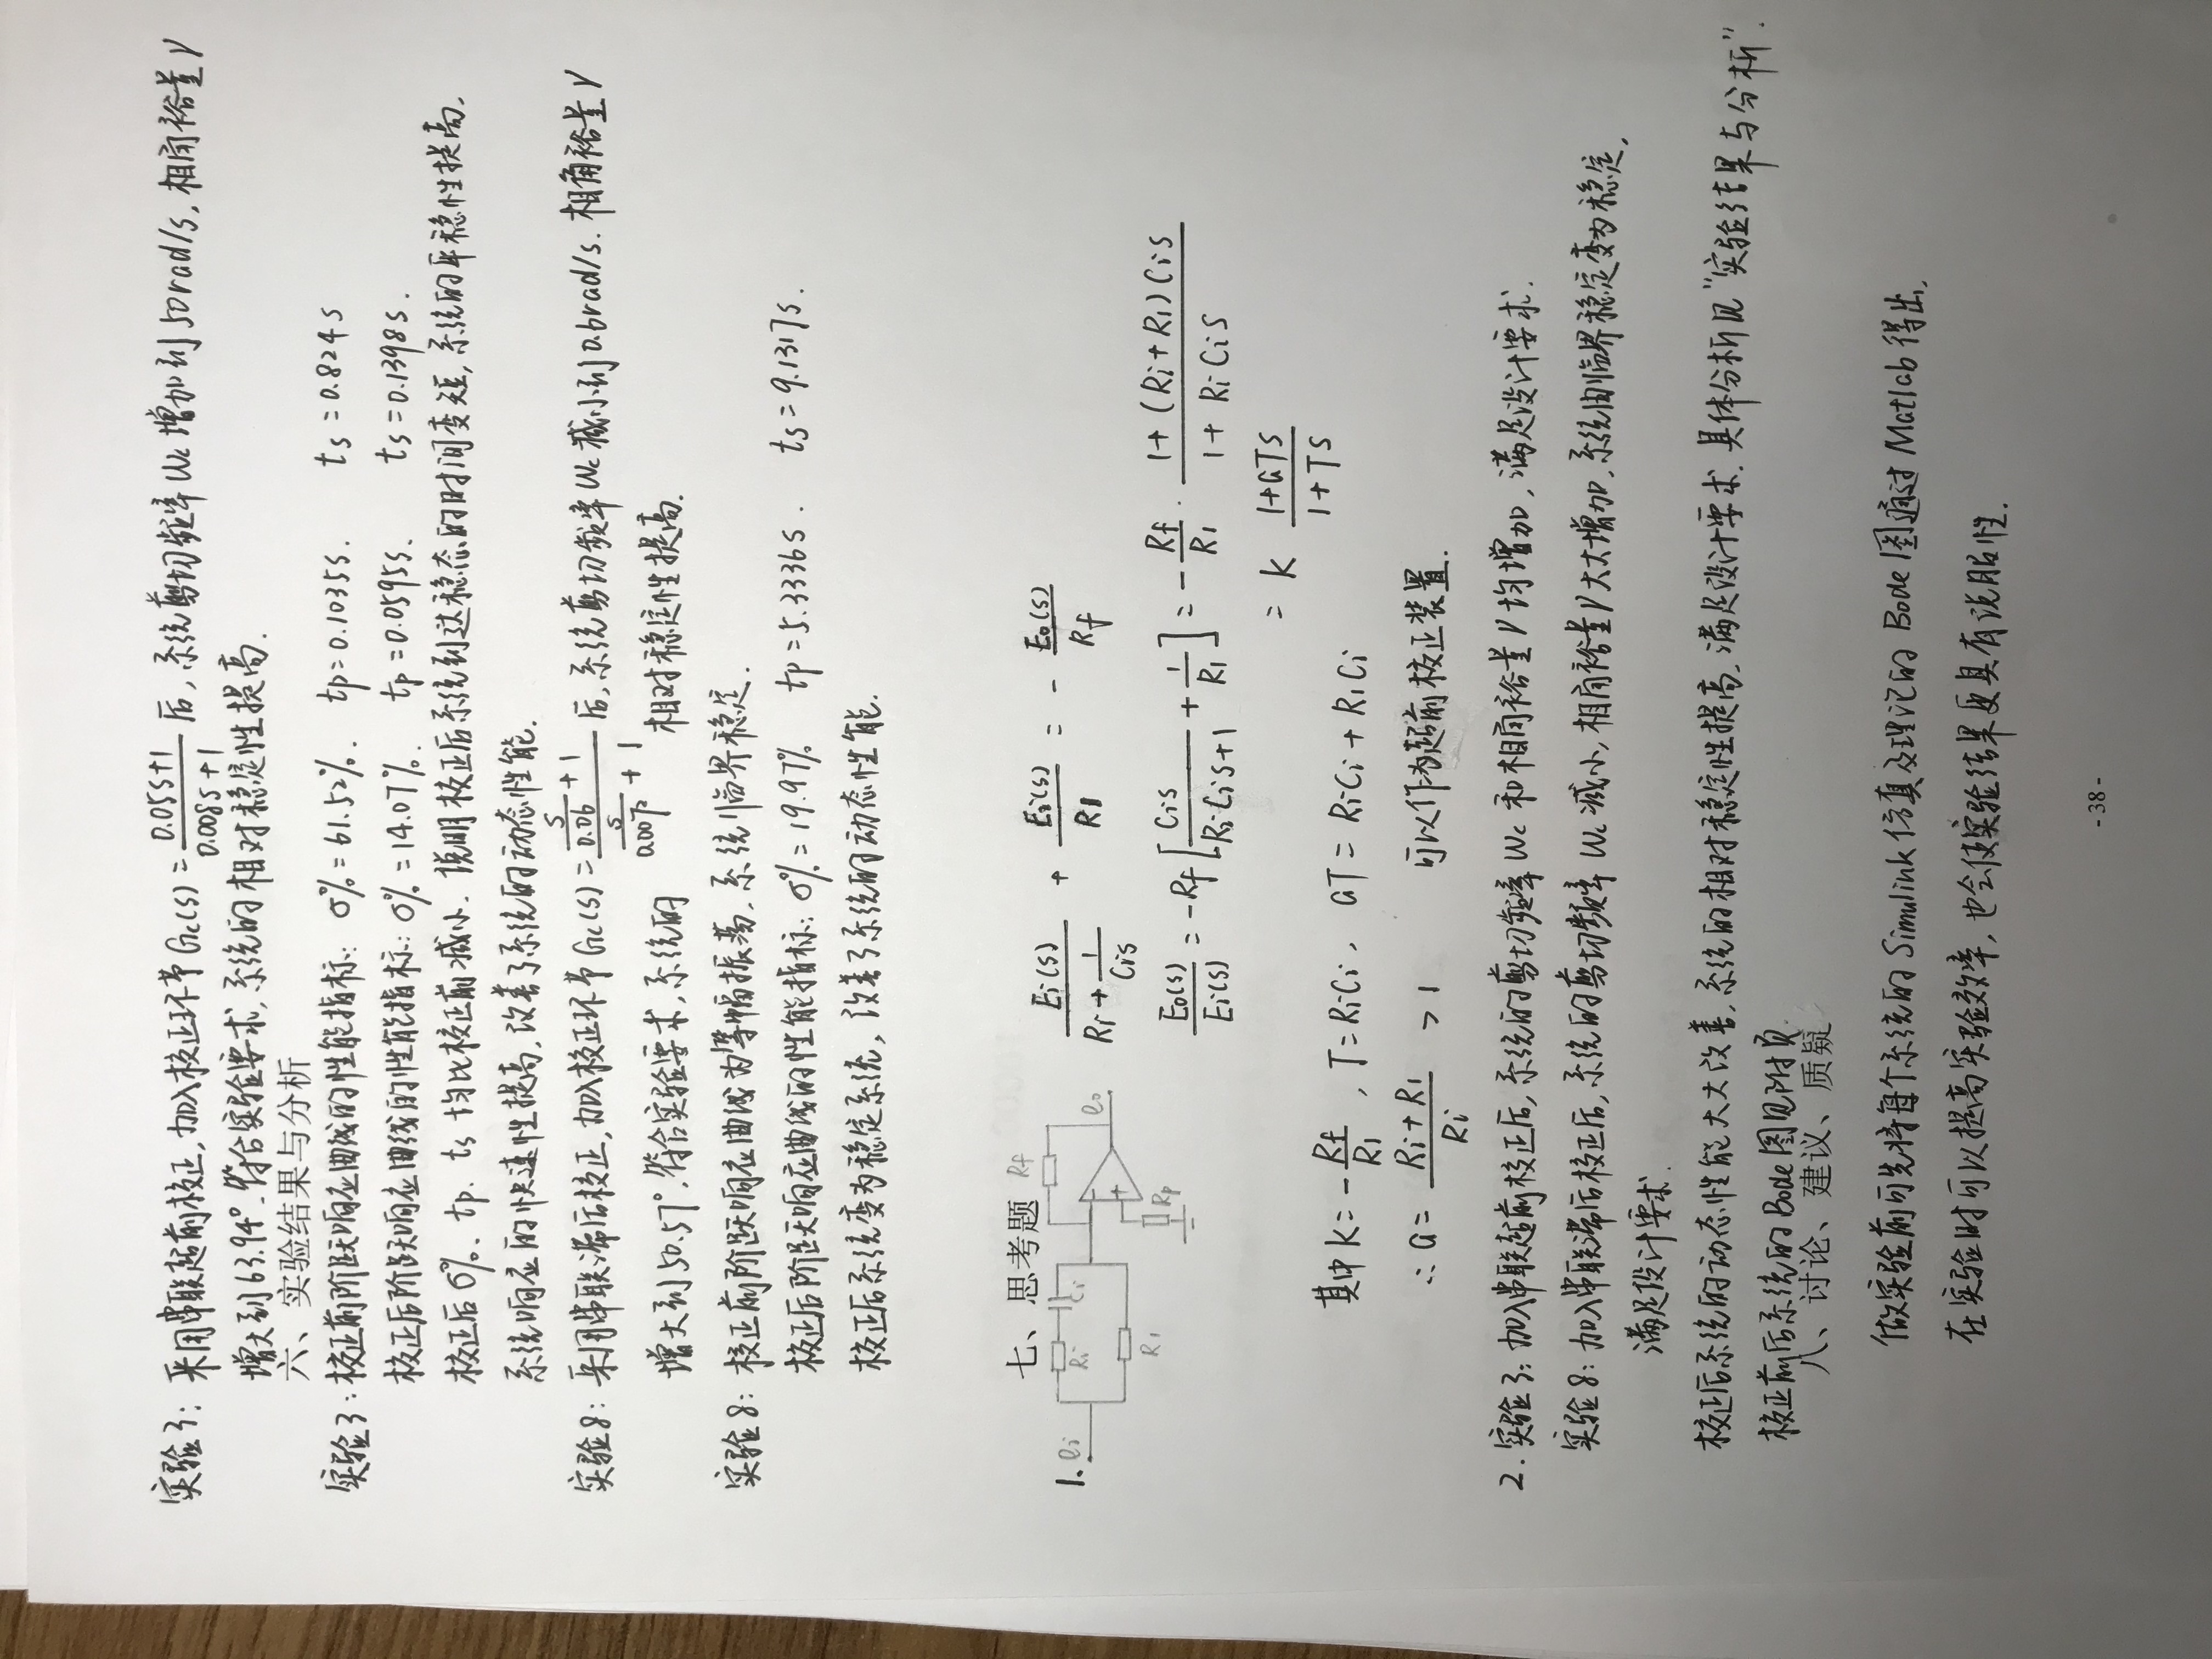 实验3: 采用串联超前校正,加入校正环节Gc(s)=(0.05s+1)/(0.008s+1)后,系统剪切频率Wc增加到50rad/s,相角裕量γ
增大到63.94°.符合实验要求,系统的相对稳定性提高.
六、实验结果与分析
实验3: 校正前阶跃响应曲线的性能指标: σ%=61.52%. tp=0.1035s. ts=0.824s
校正后阶跃响应曲线的性能指标: σ%=14.07%. tp=0.0595s. ts=0.1398s.
校正后σ%、tp、ts均比校正前减小.说明校正后系统到达稳态的时间变短,系统的平稳性提高,
系统响应的快速性提高,改善了系统的动态性能.
实验8: 采用串联滞后校正,加入校正环节Gc(s)=(s/0.06+1)/(s/0.0072+1)后,系统剪切频率Wc减小到0.6rad/s.相角裕量γ
增大到50.57°,符合实验要求,系统的相对稳定性提高.
实验8: 校正前阶跃响应曲线为等幅振荡,系统临界稳定.
校正后阶跃响应曲线的性能指标: σ%=19.97% tp=5.3336s. ts=9.1317s.
校正后系统变为稳定系统,改善了系统的动态性能.
七、思考题
1. ei Ri Ci R1 Rf Rp eo
Ei(s)/(Ri+1/(Cis)) + Ei(s)/R1 = - Eo(s)/Rf
Eo(s)/Ei(s) = -Rf[Cis/(RiCis+1) + 1/R1] = -Rf/R1 · (1+(Ri+R1)Cis)/(1+RiCis)
= K (1+aTs)/(1+Ts)
其中K=-Rf/R1, T=RiCi, aT=RiCi+R1Ci
∴a=(Ri+R1)/Ri >1 可以作为超前校正装置.
2. 实验3: 加入串联超前校正后,系统的剪切频率Wc和相角裕量γ均增加,满足设计要求.
实验8: 加入串联滞后校正后,系统的剪切频率Wc减小,相角裕量γ大大增加,系统由临界稳定变为稳定,
满足设计要求.
校正后系统的动态性能大大改善,系统的相对稳定性提高,满足设计要求.具体分析见"实验结果与分析".
校正前后系统的Bode图见附页.
八、讨论、建议、质疑
做实验前可先将每个系统的Simulink仿真及理论的Bode图通过Matlab得出,
在实验时可以提高实验效率,也会使实验结果更具有说服性.
- 38 -